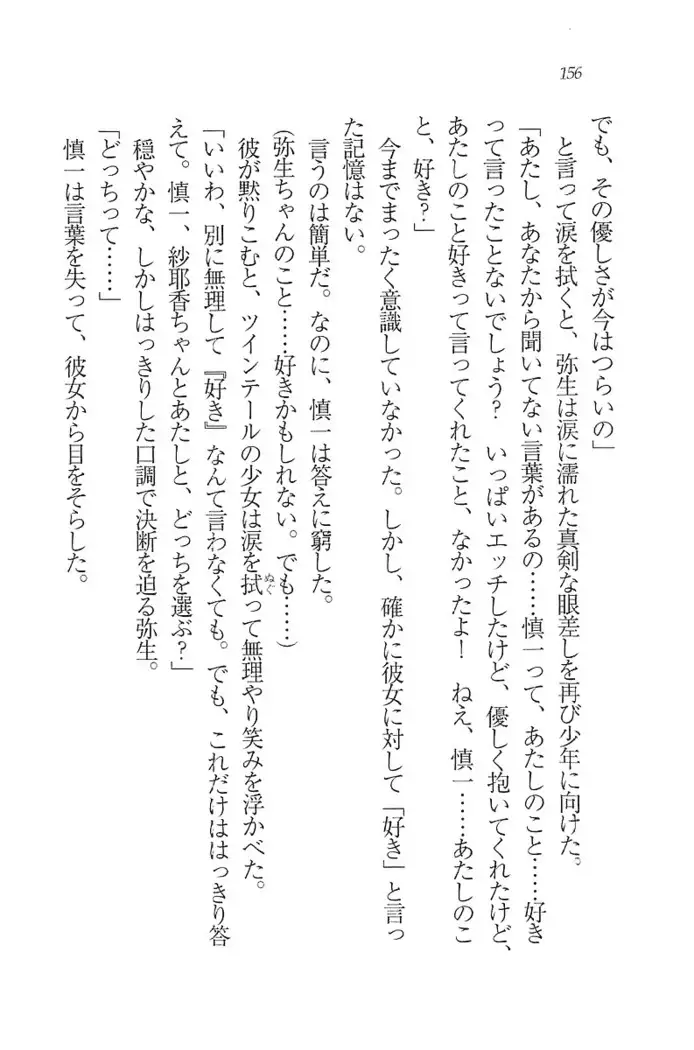 156
でも、その優しさが今はつらいの」
　と言って涙を拭くと、弥生は涙に濡れた真剣な眼差しを再び少年に向けた。
「あたし、あなたから聞いてない言葉があるの……慎一って、あたしのこと……好き
って言ったことないでしょう？　いっぱいエッチしたけど、優しく抱いてくれたけど、
あたしのこと好きって言ってくれたこと、なかったよ！　ねえ、慎一……あたしのこ
と、好き？」
　今までまったく意識していなかった。しかし、確かに彼女に対して「好き」と言っ
た記憶はない。
　言うのは簡単だ。なのに、慎一は答えに窮した。
（弥生ちゃんのこと……好きかもしれない。でも……）
　彼が黙りこむと、ツインテールの少女は涙を拭って無理やり笑みを浮かべた。
ぬぐ
「いいわ、別に無理して『好き』なんて言わなくても。でも、これだけははっきり答
えて。慎一、紗耶香ちゃんとあたしと、どっちを選ぶ？」
　穏やかな、しかしはっきりした口調で決断を迫る弥生。
「どっちって……」
　慎一は言葉を失って、彼女から目をそらした。